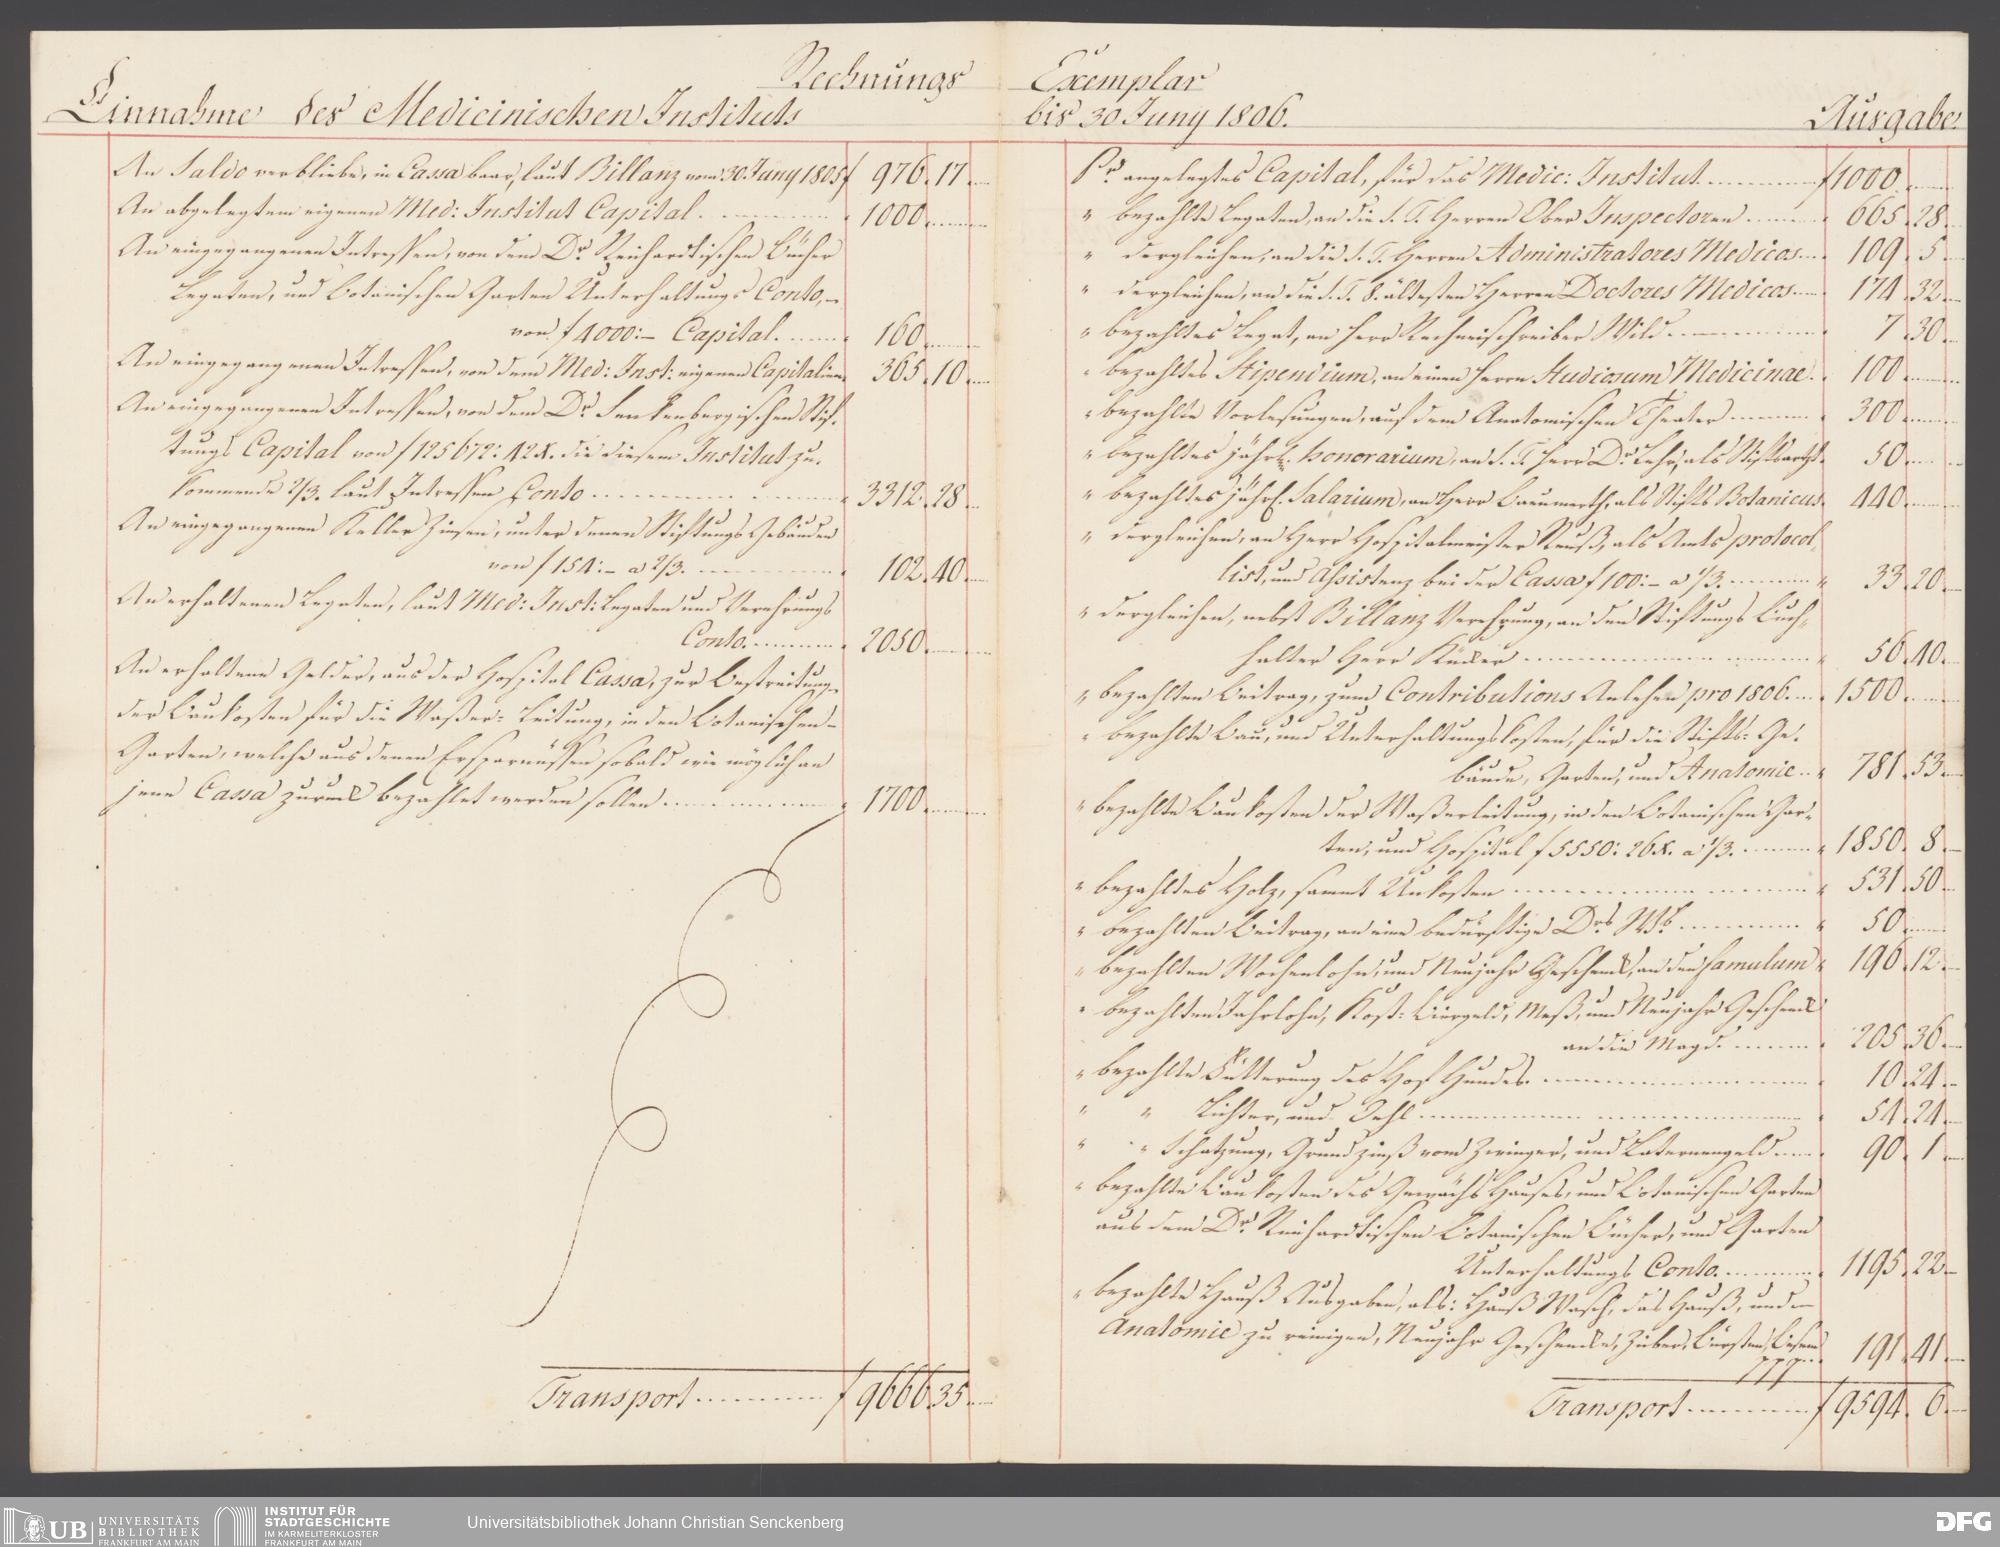 Rechnungs
Einnahme des Medicinischen Instituts
An Saldo verbliebe, in Cassa baar, laut Billanz vom 30. Juny 1805 f 976. 17.
An abgelegtem eigenen Med: Institut Capital. 1000.
An eingegangenen Intressen, von dem Dr. Reinhardtischen Bücher
Legaten, und Botanischen Garten Unterhaltungs Conto,
von f 4000:– Capital. 160.
An eingegangenen Intressen, von dem Med: Inst: eigenen Capitalien 365. 10.
An eingegangenen Intressen, von dem Dr. Senkenbergischen Stif-
tungs Capital von f 125672: 12 X. die diesem Institut zu-
kommende 2/3. laut Intressen Conto 3312. 28.
An eingegangenen Keller Zinsen, unter denen Stiftungs Gebäuden
von f 154:– a 2/3. 102. 40.
An erhaltenen Legaten, laut Med: Inst: Legaten und Verehrungs
Conto. 2050.
An erhaltene Gelder, aus der Hospital Cassa, zur Bestreitung
der Baukosten für die Waßer-Leitung, in den Botanischen-
Garten, welche aus denen Ersparnüssen sobald wie möglich an
jene Cassa zurück bezahlet werden sollen 1700.
Transport f 9666. 35.
Exemplar
bis 30 Juny 1806. Ausgabe.
Pr. angelegtes Capital, für das Medic: Institut f 1000.
" bezahlte Legaten, an die S. T. Herren Ober Inspectoren 665. 28.
" dergleichen, an die S. T. Herren Administratores Medicos 109. 5.
" dergleichen, an die S. T. 8. ältesten Herren Doctores Medicos 174. 32.
" bezahltes Legat, an Herr Rechneischreiber Wild 7. 30.
" bezahltes Stipendium, an einen Herrn Studiosum Medicinae. 100.
" bezahlte Vorlesungen, auf dem Anatomischen Theater 300.
" bezahltes jährl. honorarium, an S. T. Herr Dr. Lehr, als Stiftsartzt. 50.
" bezahltes jährl. Salarium, an Herr Baeumerth, als Stifts Botanicus 440.
" dergleichen, an Herr Hospitalmeister Reuß, als Amts protocol-
list, und Assistenz bei der Cassa f 100:– a 1/3. 33. 20.
" dergleichen, nebst Billanz Verehrung, an den Stiftungs Buch-
halter Herr Küder 56. 40.
" bezahlten Beitrag, zum Contributions Anlehen pro 1806. 1500.
" bezahlte Bau, und Unterhaltungskosten, für die Stifts-Ge-
bäude, Garten, und Anatomie 781. 53.
" bezahlte Baukosten der Waßerleitung, in den Botanischen Gar-
ten, und Hospital f 5550: 26 X. a 1/3. 1850. 8.
" bezahltes Holz, sammt Unkosten 531. 50.
" bezahlten Beitrag, an eine bedürftige Drs Wb. 50.
" bezahlten Wochenlohn, und Neujahr Geschenk, an den famulum 196. 12.
" bezahlten Jahrlohn, Kost- Biergeld, Meß, und Neujahr Geschenk
an die Magd. 205. 36.
" bezahlte Fütterung des Hof Hundes 10. 24.
" " Lichter, und Oehl 54. 24.
" " Schatzung, Grundzinß vom Zwinger, und Laternengeld 90. 1.
" bezahlte Baukosten des Gewächs Hauses, und Botanischen Garten
aus dem Dr. Reinhardtischen Botanischen Bücher, und Garten
Unterhaltungs Conto. 1195. 22.
" bezahlte Hauß Ausgaben, als: Hauß Wasch, das Hauß, und
Anatomie zu reinigen, Neujahr Geschenke, Zuber, Bürsten, Besem
ppp. 191. 41.
Transport f 9594. 6.
UB UNIVERSITÄTS
BIBLIOTHEK
FRANKFURT AM MAIN
INSTITUT FÜR
STADTGESCHICHTE
IM KARMELITERKLOSTER
FRANKFURT AM MAIN
Universitätsbibliothek Johann Christian Senckenberg
DFG